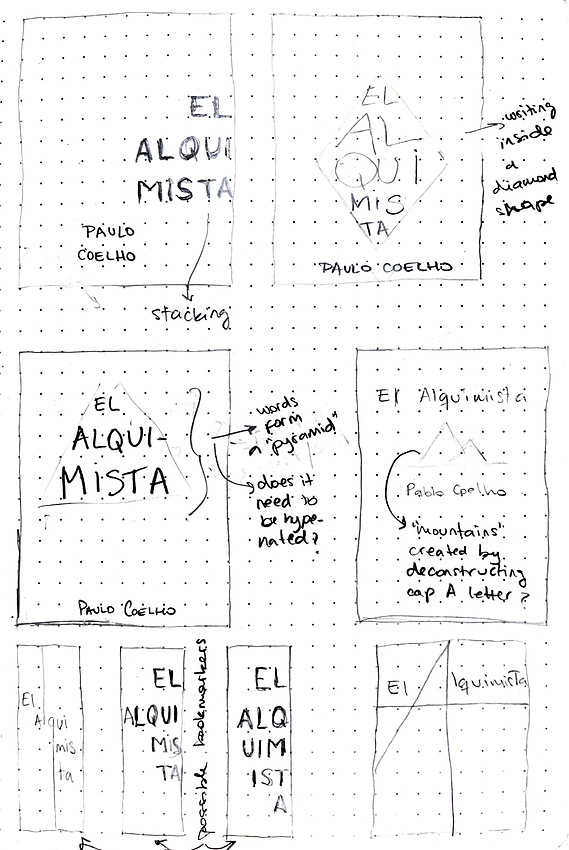 EL
ALQUI
MISTA
PAULO
COELHO
stacking
EL
AL
QUI
MIS
TA
PAULO COELHO
writing
inside
a
diamond
shape
EL
ALQUI-
MISTA
PAULO COELHO
words
form
a "pyramid"
does it
need to
be hype-
nated?
El Alquimista
Pablo Coelho
"mountains"
created by
deconstructing
cap A letter?
El
Alqui
mis
ta
EL
ALQUI
MIS
TA
possible bookmarkers
EL
ALQ
UIM
IST
A
El lquimista